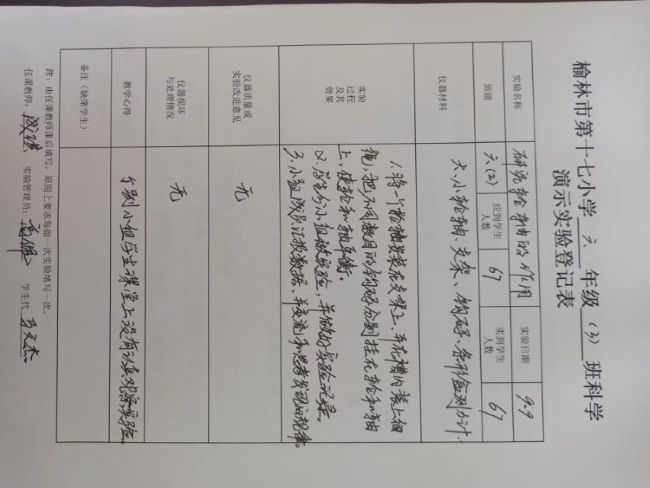 榆林市第十七小学 六 年级 (3) 班科学
演示实验登记表
实验名称 研究轮轴的作用 实验日期 9.9
班级 六(2) 应到学生人数 67 实到学生人数 67
仪器材料 大、小轮轴、支架、钩码、各种检测力计.
实验过程及其效果
1.将一个轮轴安装在支架上,并在槽内装上细
绳,把不同数目的钩码分别挂在轮和轴
上,使轮和轴平衡。
2.学生分小组做实验,并做好实验记录。
3.小组成员汇报数据,并交流和思考发现的规律。
仪器质量或实验改进意见 无
仪器损坏与处理情况 无
教学心得 个别小组学生课堂上没有认真观察实验。
备注(缺席学生)
注:由任课教师课后填写,原则上要求每做一次实验填写一次。
任课教师: 实验管理员: 学生代